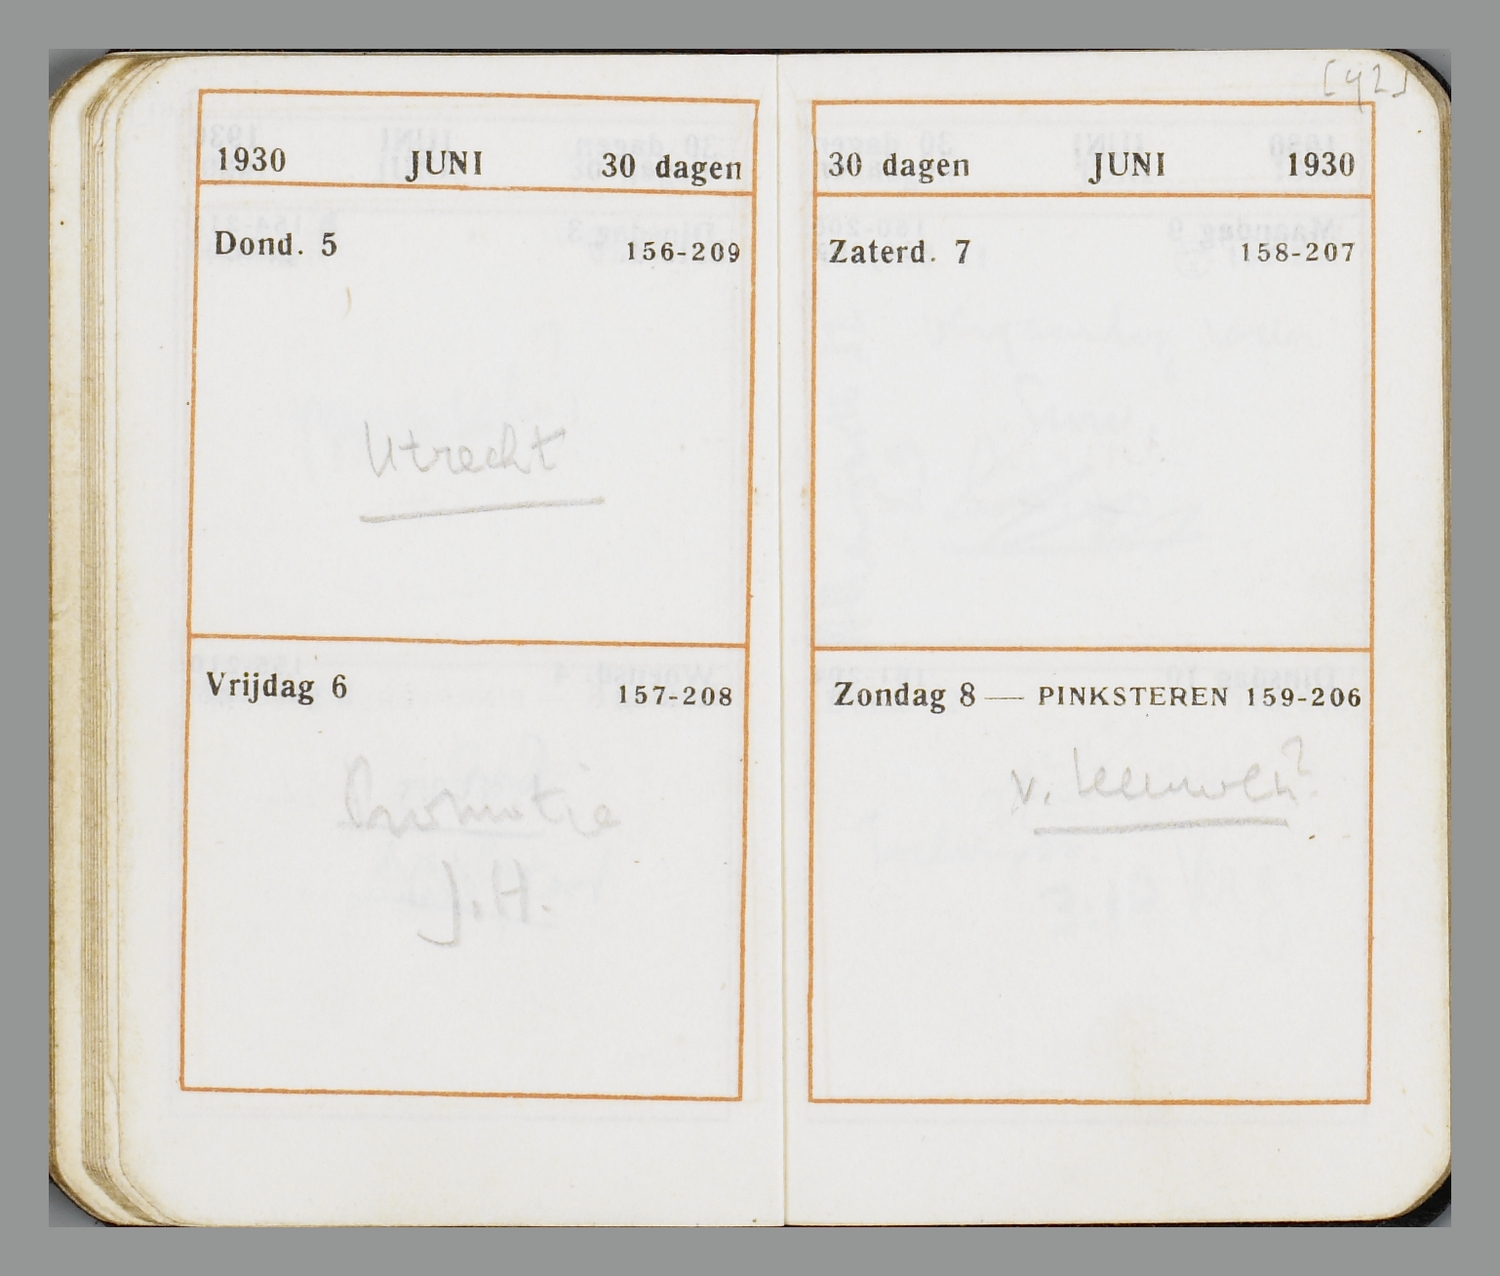 1930 JUNI 30 dagen
Dond. 5 156-209
Utrecht
Vrijdag 6 157-208
Promotie
J.H.
[42]
30 dagen JUNI 1930
Zaterd. 7 158-207
Zondag 8 — PINKSTEREN 159-206
v. Leeuwen?